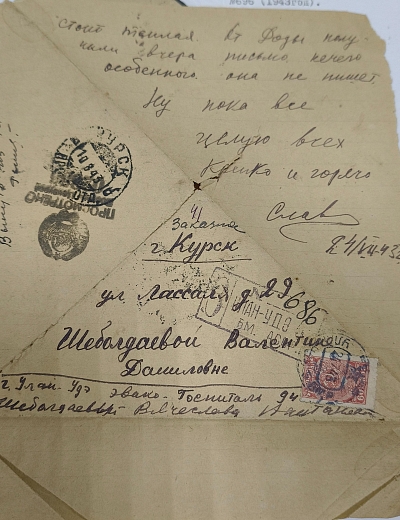 №36 (1943год).
стоит теплая. От Доды полу-
чили вчера письмо нечего
особенного она не пишет.
Ну пока все
целую всех
Крепко и горячо
Слав
24/VII-43г
КУРСК
10 8 43
ПРОСМОТРЕНО
Заказное
г. Курск
ул Лассаля д 29
686
УЛАН-УДЭ
Шеболдаевой Валентине
Даниловне
г. Улан-Удэ эвако-Госпиталь
Шеболдаевым Вячеслава